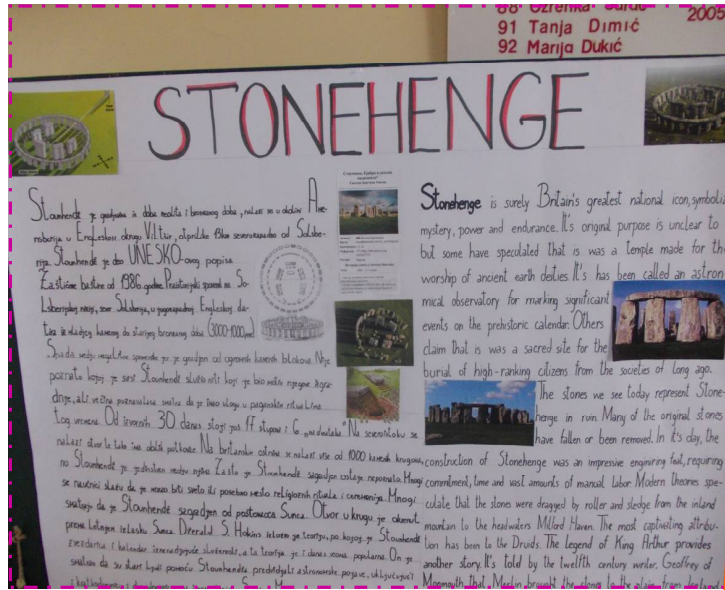 88 Ozrenka
91 Tanja Dimić 2005
92 Marija Dukić
STONEHENGE
Stounhendž je građevina iz doba neolita i bronzanog doba, nalazi se u okolini
u Engleskoj okrug Viltšir, otprilike 13km severozapadno od
Stounhendž je deo UNESKO-ovog popisa
Zaštićene baštine od 1986. godine. Praistorijski spomenik na
sever Solsberija, u jugozapadnoj Engleskoj da-
tira iz mlađeg kamenog do starijeg bronzanog doba (3000-1000
Spada među megalitske spomenike jer je građen od ogromnih kamenih blokova. Nije
poznato kojoj je svrsi Stounhendž služio niti koji je bio način njegove izgra-
dnje, ali većina poznavalaca smatra da je imao ulogu u paganskim ritualima
tog vremena. Od izvornih 30, danas stoji još 17 stupova i 6 Na severoistoku se
nalazi otvor te tako ima oblik potkovice. Na britanskom ostrvu se nalazi više od 1000 kamenih krugova,
no Stounhendž je jedinstven među njima. Zašto je Stounhendž sagrađen ostaje nepoznato. Mnogi
se naučnici slažu da je morao biti sveto ili posebno mesto religioznih rituala i ceremonija. Mnogi
smatraju da je Stounhendž sagrađen od poštovaoca Sunca. Otvor u krugu je okrenut
prema letnjem izlasku Sunca. S. Hokins izložio je teoriju, po kojoj je Stounhendž
zvezdarnica i kalendar iznenađujuće složenosti, a ta teorija je i danas veoma popularna. On je
smatrao da su stari ljudi pomoću Stounhendža predviđali astronomske pojave, uključujući
Stonehenge is surely Britain's greatest national icon, symboli
mystery, power and endurance. It's original purpose is unclear to
but some have speculated that is was a temple made for th
worship of ancient earth deities. It's has been called an astron
mical observatory for marking significant
events on the prehistoric calendar. Others
claim that is was a sacred site for the
burial of high-ranking citizens from the societies of long ago.
The stones we see today represent Stone-
henge in ruin. Many of the original stones
have fallen or been removed. In it's day, the
construction of Stonehenge was an impressive enginiring feat, requiring
commitment, time and vast amounts of manual labor. Modern theories spe-
culate that the stones were dragged by roller and sledge from the inland
mountain to the headwaters Milford Haven. The most captivating attribu-
tion has been to the Druids. The legend of King Arthur provides
another story. It's told by the twelfth century writer, Geoffrey of
Monmouth that Merlin brought the stones to the plain from